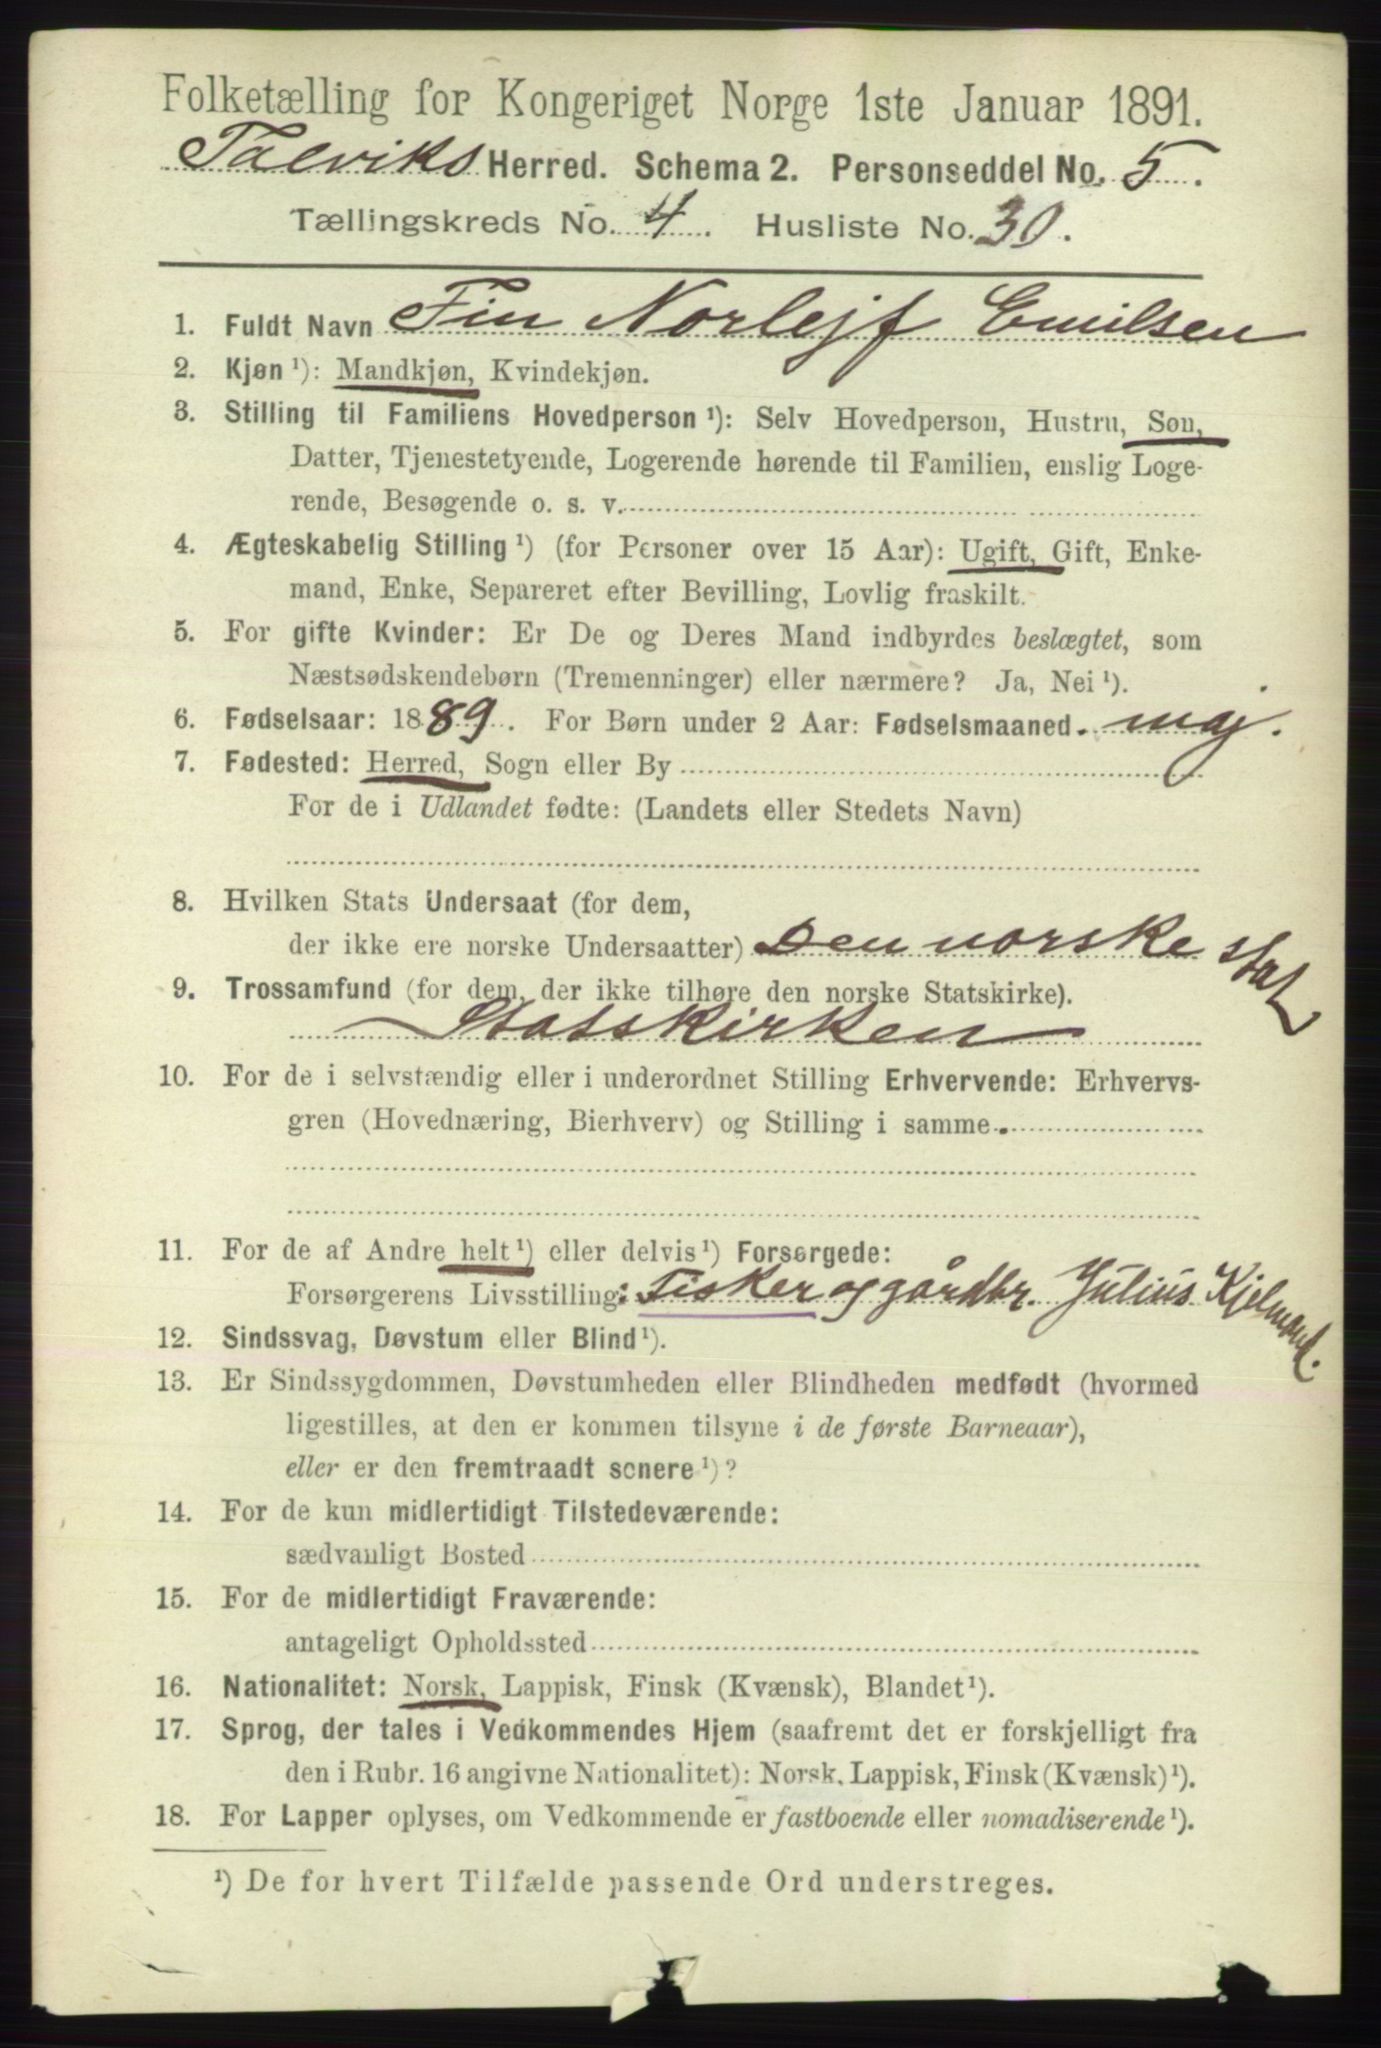 Folketælling for Kongeriget Norge 1ste Januar 1891.
Talviks Herred. Schema 2. Personseddel No. 5.
Tællingskreds No. 4. Husliste No. 30.
1. Fuldt Navn Fin Norlejf Emilsen
2. Kjøn ¹): Mandkjøn, Kvindekjøn.
3. Stilling til Familiens Hovedperson ¹): Selv Hovedperson, Hustru, Søn,
Datter, Tjenestetyende, Logerende hørende til Familien, enslig Loge-
rende, Besøgende o. s. v.
4. Ægteskabelig Stilling ¹) (for Personer over 15 Aar): Ugift, Gift, Enke-
mand, Enke, Separeret efter Bevilling, Lovlig fraskilt.
5. For gifte Kvinder: Er De og Deres Mand indbyrdes beslægtet, som
Næstsødskendebørn (Tremenninger) eller nærmere? Ja, Nei ¹).
6. Fødselsaar: 1889. For Børn under 2 Aar: Fødselsmaaned. maj.
7. Fødested: Herred, Sogn eller By
For de i Udlandet fødte: (Landets eller Stedets Navn)
8. Hvilken Stats Undersaat (for dem,
der ikke ere norske Undersaatter) Den norske stat
9. Trossamfund (for dem, der ikke tilhøre den norske Statskirke).
Statskirken
10. For de i selvstændig eller i underordnet Stilling Erhvervende: Erhvervs-
gren (Hovednæring, Bierhverv) og Stilling i samme.
11. For de af Andre helt ¹) eller delvis ¹) Forsørgede:
Forsørgerens Livsstilling: Fisker og gårdbr. Julius Kjelmand.
12. Sindssvag, Døvstum eller Blind ¹).
13. Er Sindssygdommen, Døvstumheden eller Blindheden medfødt (hvormed
ligestilles, at den er kommen tilsyne i de første Barneaar),
eller er den fremtraadt senere ¹)?
14. For de kun midlertidigt Tilstedeværende:
sædvanligt Bosted
15. For de midlertidigt Fraværende:
antageligt Opholdssted
16. Nationalitet: Norsk, Lappisk, Finsk (Kvænsk), Blandet ¹).
17. Sprog, der tales i Vedkommendes Hjem (saafremt det er forskjelligt fra
den i Rubr. 16 angivne Nationalitet): Norsk, Lappisk, Finsk (Kvænsk) ¹).
18. For Lapper oplyses, om Vedkommende er fastboende eller nomadiserende ¹).
¹) De for hvert Tilfælde passende Ord understreges.